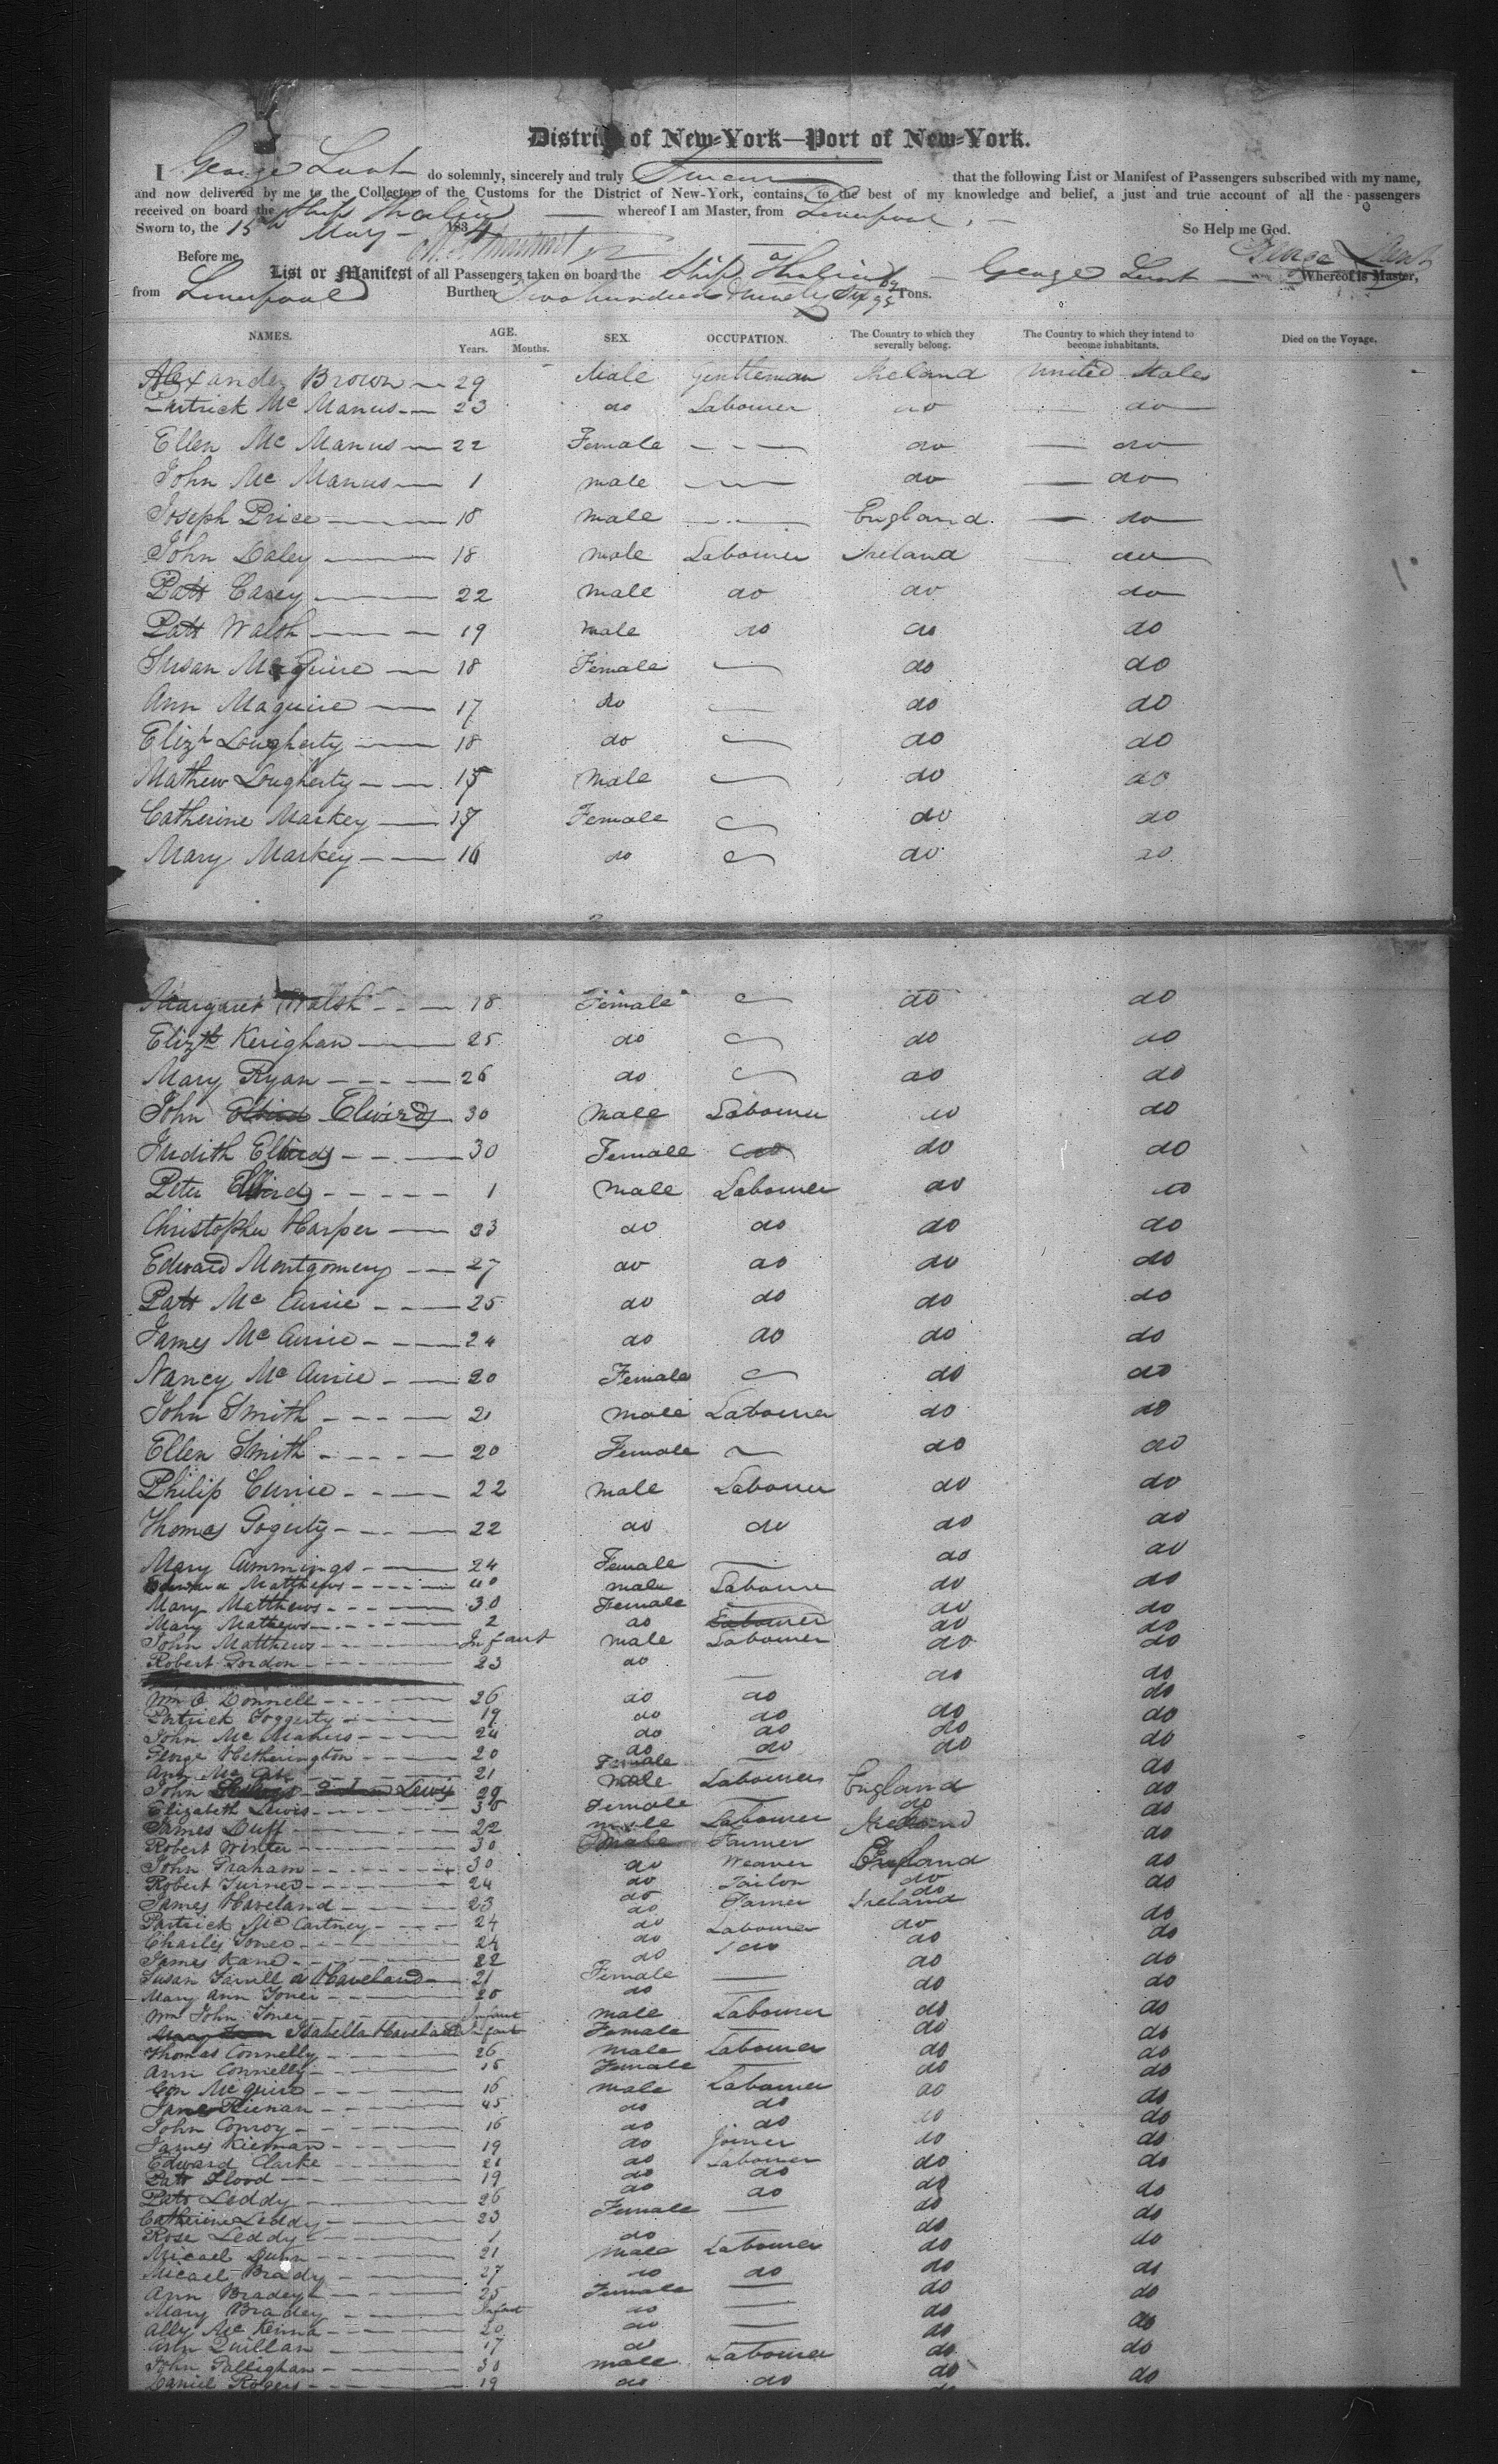 District of New-York—Port of New-York.
I George Lunt do solemnly, sincerely and truly Swear that the following List or Manifest of Passengers subscribed with my name,
and now delivered by me to the Collector of the Customs for the District of New-York, contains, to the best of my knowledge and belief, a just and true account of all the passengers
received on board the Ship Thalia whereof I am Master, from Liverpool
Sworn to, the 15th May 1834 So Help me God.
Before me George Lunt
List or Manifest of all Passengers taken on board the Ship Thalia George Lunt Whereof is Master,
from Liverpool Burthen Two hundred Ninety Six Tons.
NAMES. AGE. Years. Months. SEX. OCCUPATION. The Country to which they severally belong. The Country to which they intend to become inhabitants. Died on the Voyage.
Alexander Brown 29 Male Gentleman Ireland United States
Patrick Mc Manus 23 do Labourer do do
Ellen Mc Manus 22 Female do do
John Mc Manus 1 male do do
Joseph Price 18 male England do
John Daley 18 male Labourer Ireland do
Patt Casey 22 male do do do
Patt Walsh 19 male do do do
Susan McGuire 18 Female do do
Ann Maguire 17 do do do
Elizh Lougherty 18 do do do
Mathew Lougherty 15 male do do
Catherine Markey 17 Female do do
Mary Markey 16 do do do
Margaret Walsh 18 Female do do
Elizth Kerighan 25 do do do
Mary Ryan 26 do do do
John Elwirds 30 male Labourer do do
Judith Elwirds 30 Female do do
Peter Elwirds 1 male Labourer do do
Christopher Harper 23 do do do do
Edward Montgomery 27 do do do do
Patt Mc Currie 25 do do do do
James Mc Currie 24 do do do do
Nancy Mc Currie 20 Female do do
John Smith 21 male Labourer do do
Ellen Smith 20 Female do do
Philip Currie 22 male Labourer do do
Thomas Gogerty 22 do do do do
Mary Cummings 24 Female do do
Matthews 40 male Labourer do do
Mary Matthews 30 Female do do
Mary Mathews 2 do Labourer do do
John Matthews Infant male Labourer do do
Robert Gordon 23 do do do
Wm O Donnell 26 do do do
Patrick Foggerty 19 do do do do
John Mc Manus 24 do do do do
George Hetherington 20 do do do do
Ann Mc Cabe 21 Female do
John Lewis 29 male Labourer England do
Elizabeth Lewis 36 Female do do
James Duff 22 male Labourer Ireland do
Robert Winter 30 male Farmer do
John Graham 30 do Weaver England do
Robert Turner 24 do Tailor do do
James Haveland 23 do Farmer Ireland do
Partrick Mc Cartney 24 do Labourer do do
Charles Toner 24 do do do do
James Kane 22 do do do
Susan Farrell a Haveland 21 Female do do
Mary Ann Toner 20 do do do
Wm John Toner Infant male Labourer do do
Isabella Haveland Infant Female do do
Thomas Connelly 26 male Labourer do do
Ann Connelly 18 Female do do
Con McGuire 16 male Labourer do do
James Kienan 45 do do do do
John Conroy 16 do do do do
James Kiernan 19 do Joiner do do
Edward Clarke 21 do Labourer do do
Patt Flood 19 do do do do
Patt Leddy 26 do do do do
Catherine Leddy 23 Female do do
Rose Leddy 1 do do do
Micael Dunn 21 male Labourer do do
Micael Brady 27 do do do do
Ann Bradey 25 Female do do
Mary Bradey Infant do do do
Ally Mc Kenna 20 do do do
Ann Quillan 17 do do do
John Gallighan 30 male Labourer do do
Daniel Rogers 19 do do do do